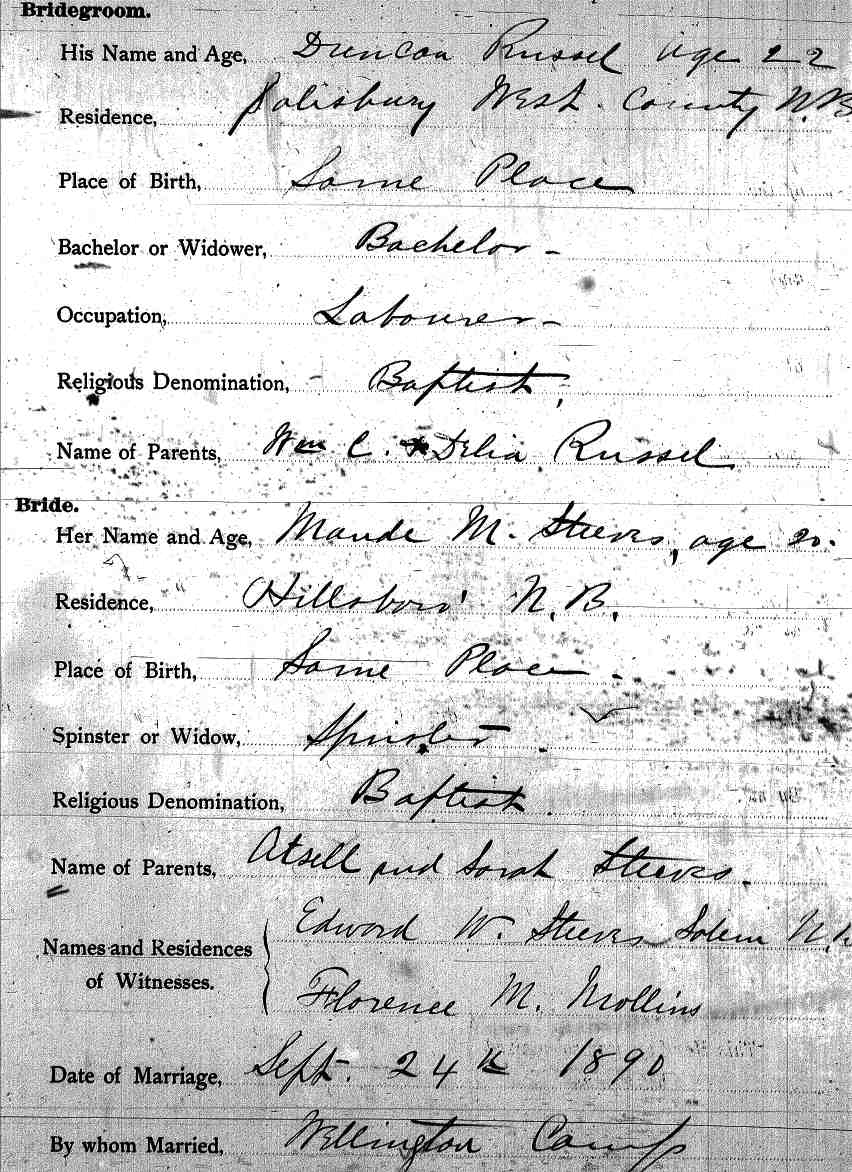 Bridegroom.
His Name and Age, Duncan Russel age 22
Residence, Salisbury West. County N.B
Place of Birth, Same Place
Bachelor or Widower, Bachelor -
Occupation, Labourer -
Religious Denomination, Baptist,
Name of Parents, Wm C. & Delia Russel
Bride.
Her Name and Age, Maude M. Steeves, age 20.
Residence, Hillsboro' N.B.
Place of Birth, Same Place.
Spinster or Widow, Spinster
Religious Denomination, Baptist.
Name of Parents, Atsell and Sarah Steeves.
Names and Residences Edward W. Steeves Salem N.B
of Witnesses. Florence M. Mollins
Date of Marriage, Sept. 24th 1890
By whom Married, Wellington Camp